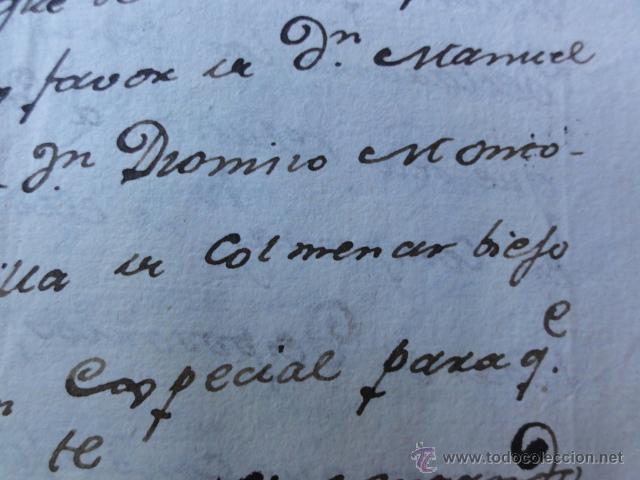 favor de Dn. Manuel
Dn Dionisio Monto-
illa de Colmenar biejo
n Especial para qe.
te
todocoleccion
www.todocoleccion.net